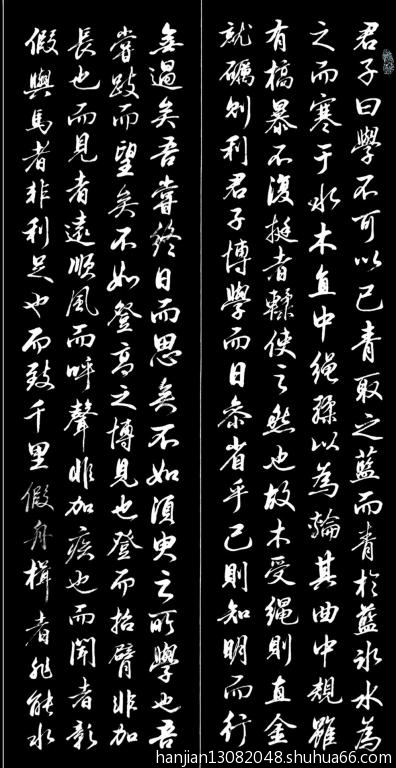 君子曰學不可以已青取之藍而青於藍冰水為
之而寒于水木直中繩輮以為輪其曲中規雖
有槁暴不復挺者輮使之然也故木受繩則直金
就礪則利君子博學而日參省乎己則知明而行
無過矣吾嘗終日而思矣不如須臾之所學也吾
嘗跂而望矣不如登高之博見也登而招臂非加
長也而見者遠順風而呼聲非加疾也而聞者彰
假輿馬者非利足也而致千里假舟楫者非能水
hanjian13082048.shuhua66.com